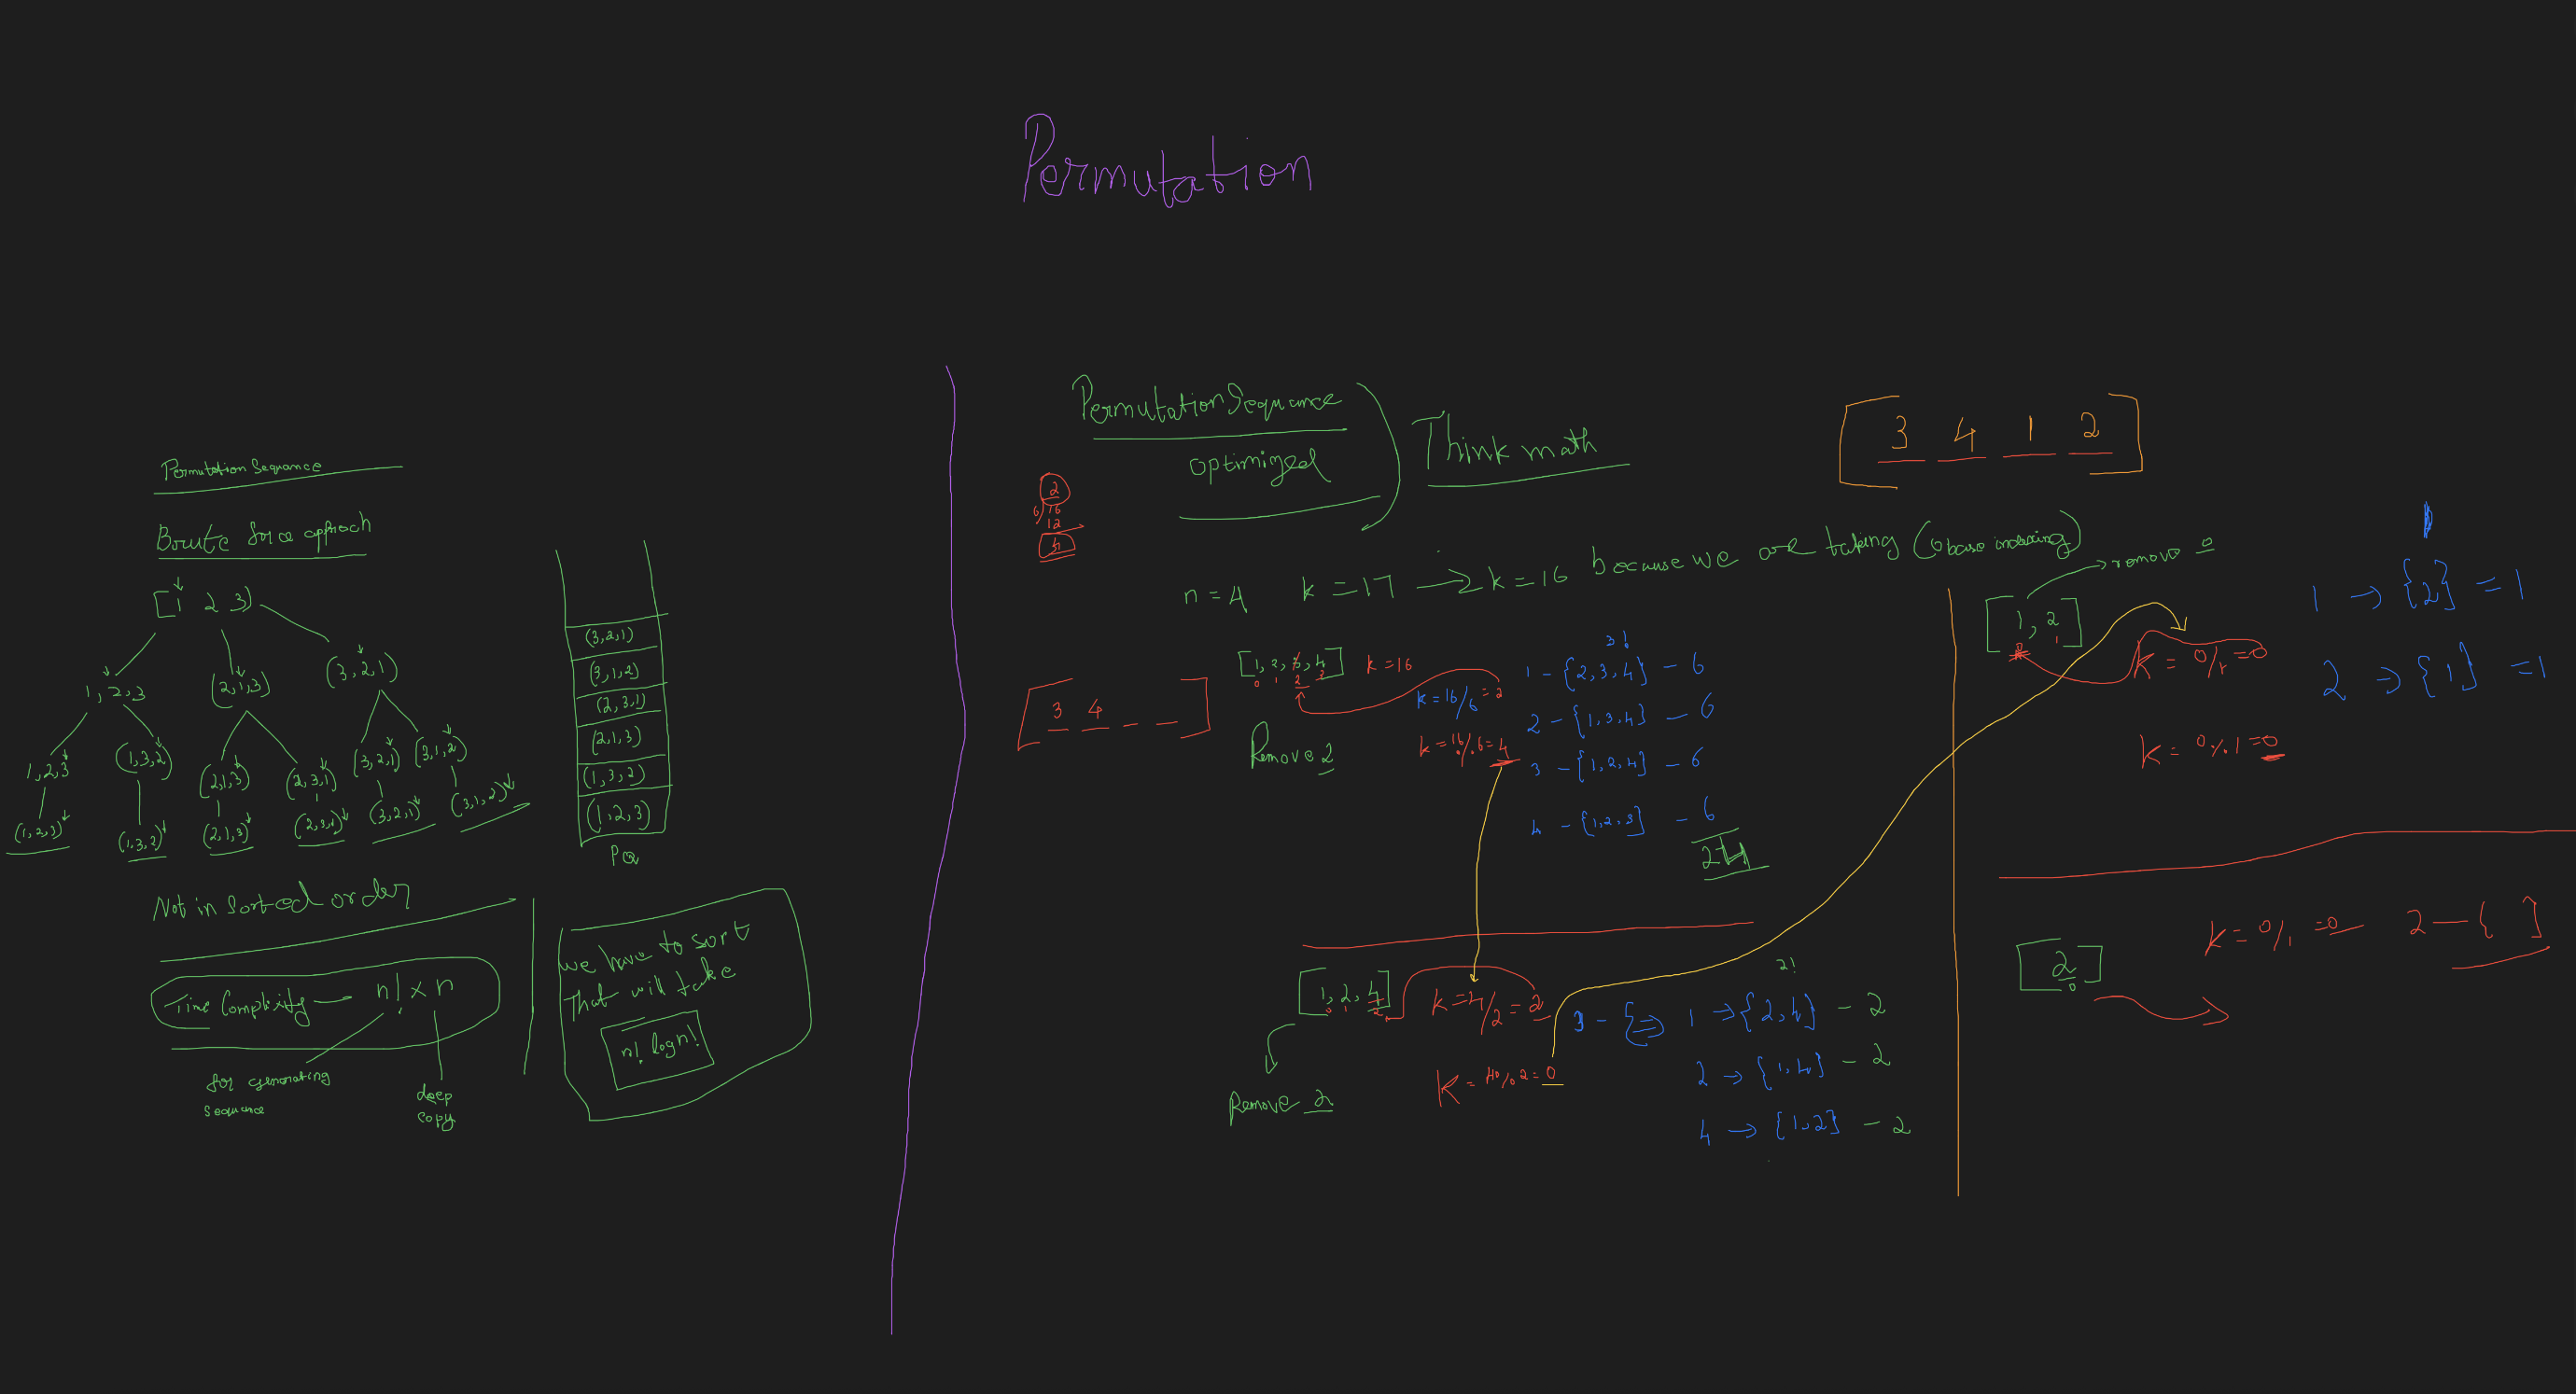 Permutation
Permutation Sequance
Brute force approch
[1 2 3)
1,2,3
(2,1,3)
(3,2,1)
1,2,3
(1,3,2)
(2,1,3)
(2,3,1)
(3,2,1)
(3,1,2)
(1,2,3)
(1,3,2)
(2,1,3)
(2,3,1)
(3,2,1)
(3,1,2)
Not in Sorted order
Time Complixity — n! × n
for generating
sequance
deep
copy
(3,2,1)
(3,1,2)
(2,3,1)
(2,1,3)
(1,3,2)
(1,2,3)
PQ
we have to sort
That will take
n! log n!
Permutation Sequance
optimized
Think math
[ 3 4 1 2 ]
2
6)16
12
4
n = 4 k = 17 → k = 16 because we are taking (0 base indexing)
[1, 2, 3, 4] k = 16
0 1 2 3
[ 3 4 _ _ ]
k = 16/6 = 2
k = 16 % 6 = 4
Remove 2
3!
1 - {2,3,4} - 6
2 - {1,3,4} - 6
3 - {1,2,4} - 6
4 - {1,2,3} - 6
24
[1, 2, 4]
0 1 2
k = 4/2 = 2
K = 4 % 2 = 0
Remove 2
2!
3 - { ⇒ 1 → {2,4} - 2
2 → {1,4} - 2
4 → {1,2} - 2
remove 0
[1, 2]
0 1
K = 0/1 = 0
K = 0 % 1 = 0
1 → {2} = 1
2 → {1} = 1
[2]
0
K = 0/1 = 0 2 — { }